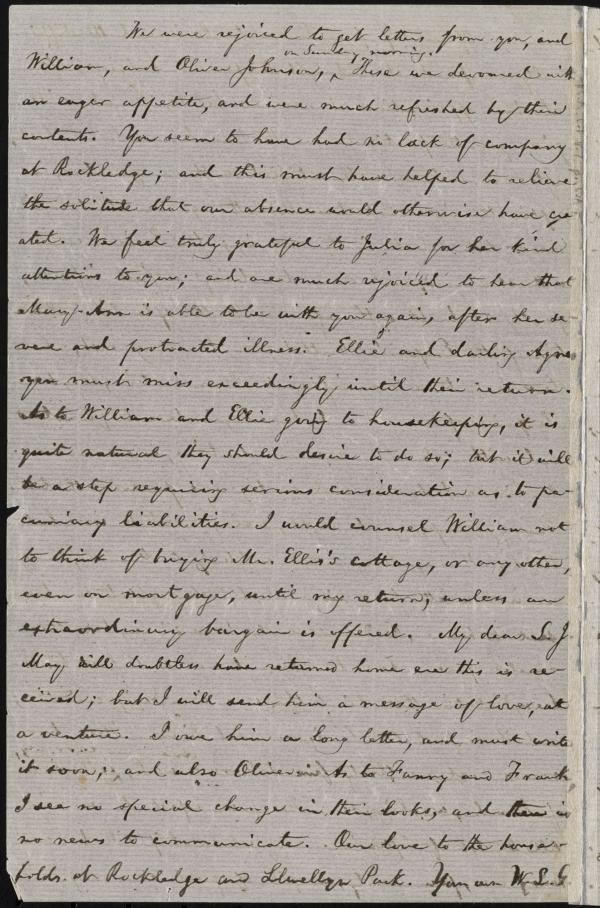 We were rejoiced to get letters from you, and
on Sunday morning.
William, and Oliver Johnson, ‸ These we devoured with
an eager appetite, and were much refreshed by their
contents. You seem to have had no lack of company
at Rockledge; and this must have helped to relieve
the solitude that our absence would otherwise have cre-
ated. We feel truly grateful to Julia for her kind
attentions to you; and are much rejoiced to hear that
Mary-Ann is able to be with you again, after her se-
vere and protracted illness. Ellie and darling Agnes
you must miss exceedingly until their return.
As to William and Ellie going to housekeeping, it is
quite natural they should desire to do so; but it will
be a step requiring serious consideration as to pe-
cuniary liabilities. I would counsel William not
to think of buying Mr. Ellis's cottage, or any other,
even on mortgage, until my return, unless an
extraordinary bargain is offered. My dear S. J.
May will doubtless have returned home ere this is re-
ceived; but I will send him a message of love, at
a venture. I owe him a long letter, and must write
it soon; and also Oliver. As to Fanny and Frank
I see no special change in their looks, and there is
no news to communicate. Our love to the house-
holds at Rockledge and Llwellyn Park. Your own W. L. G.